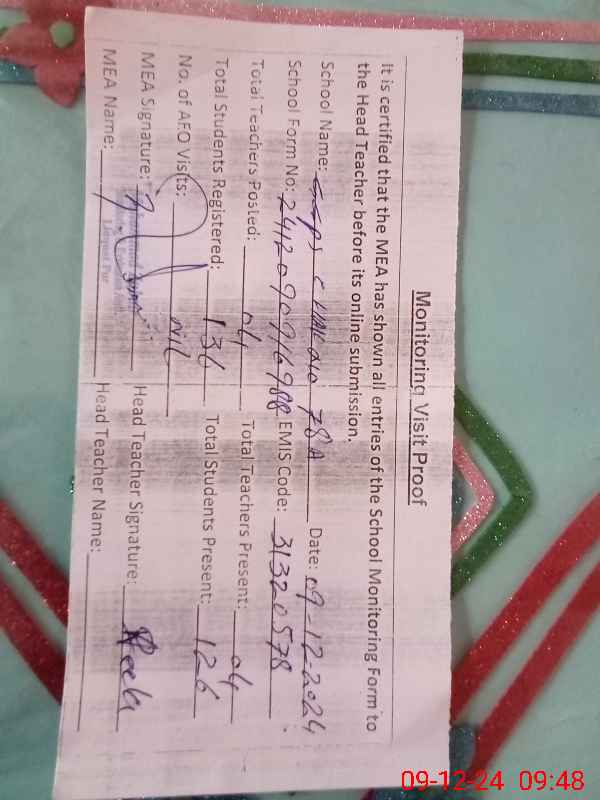 Monitoring Visit Proof
It is certified that the MEA has shown all entries of the School Monitoring Form to
the Head Teacher before its online submission.
School Name: 78 A Date: 09-12-2024
School Form No: 2412090916988 EMIS Code: 31320578
Total Teachers Posted: 04 Total Teachers Present: 04
Total Students Registered: 136 Total Students Present: 126
No. of AEO Visits: nil
MEA Signature: Head Teacher Signature:
MEA Name: Head Teacher Name:
09-12-24 09:48